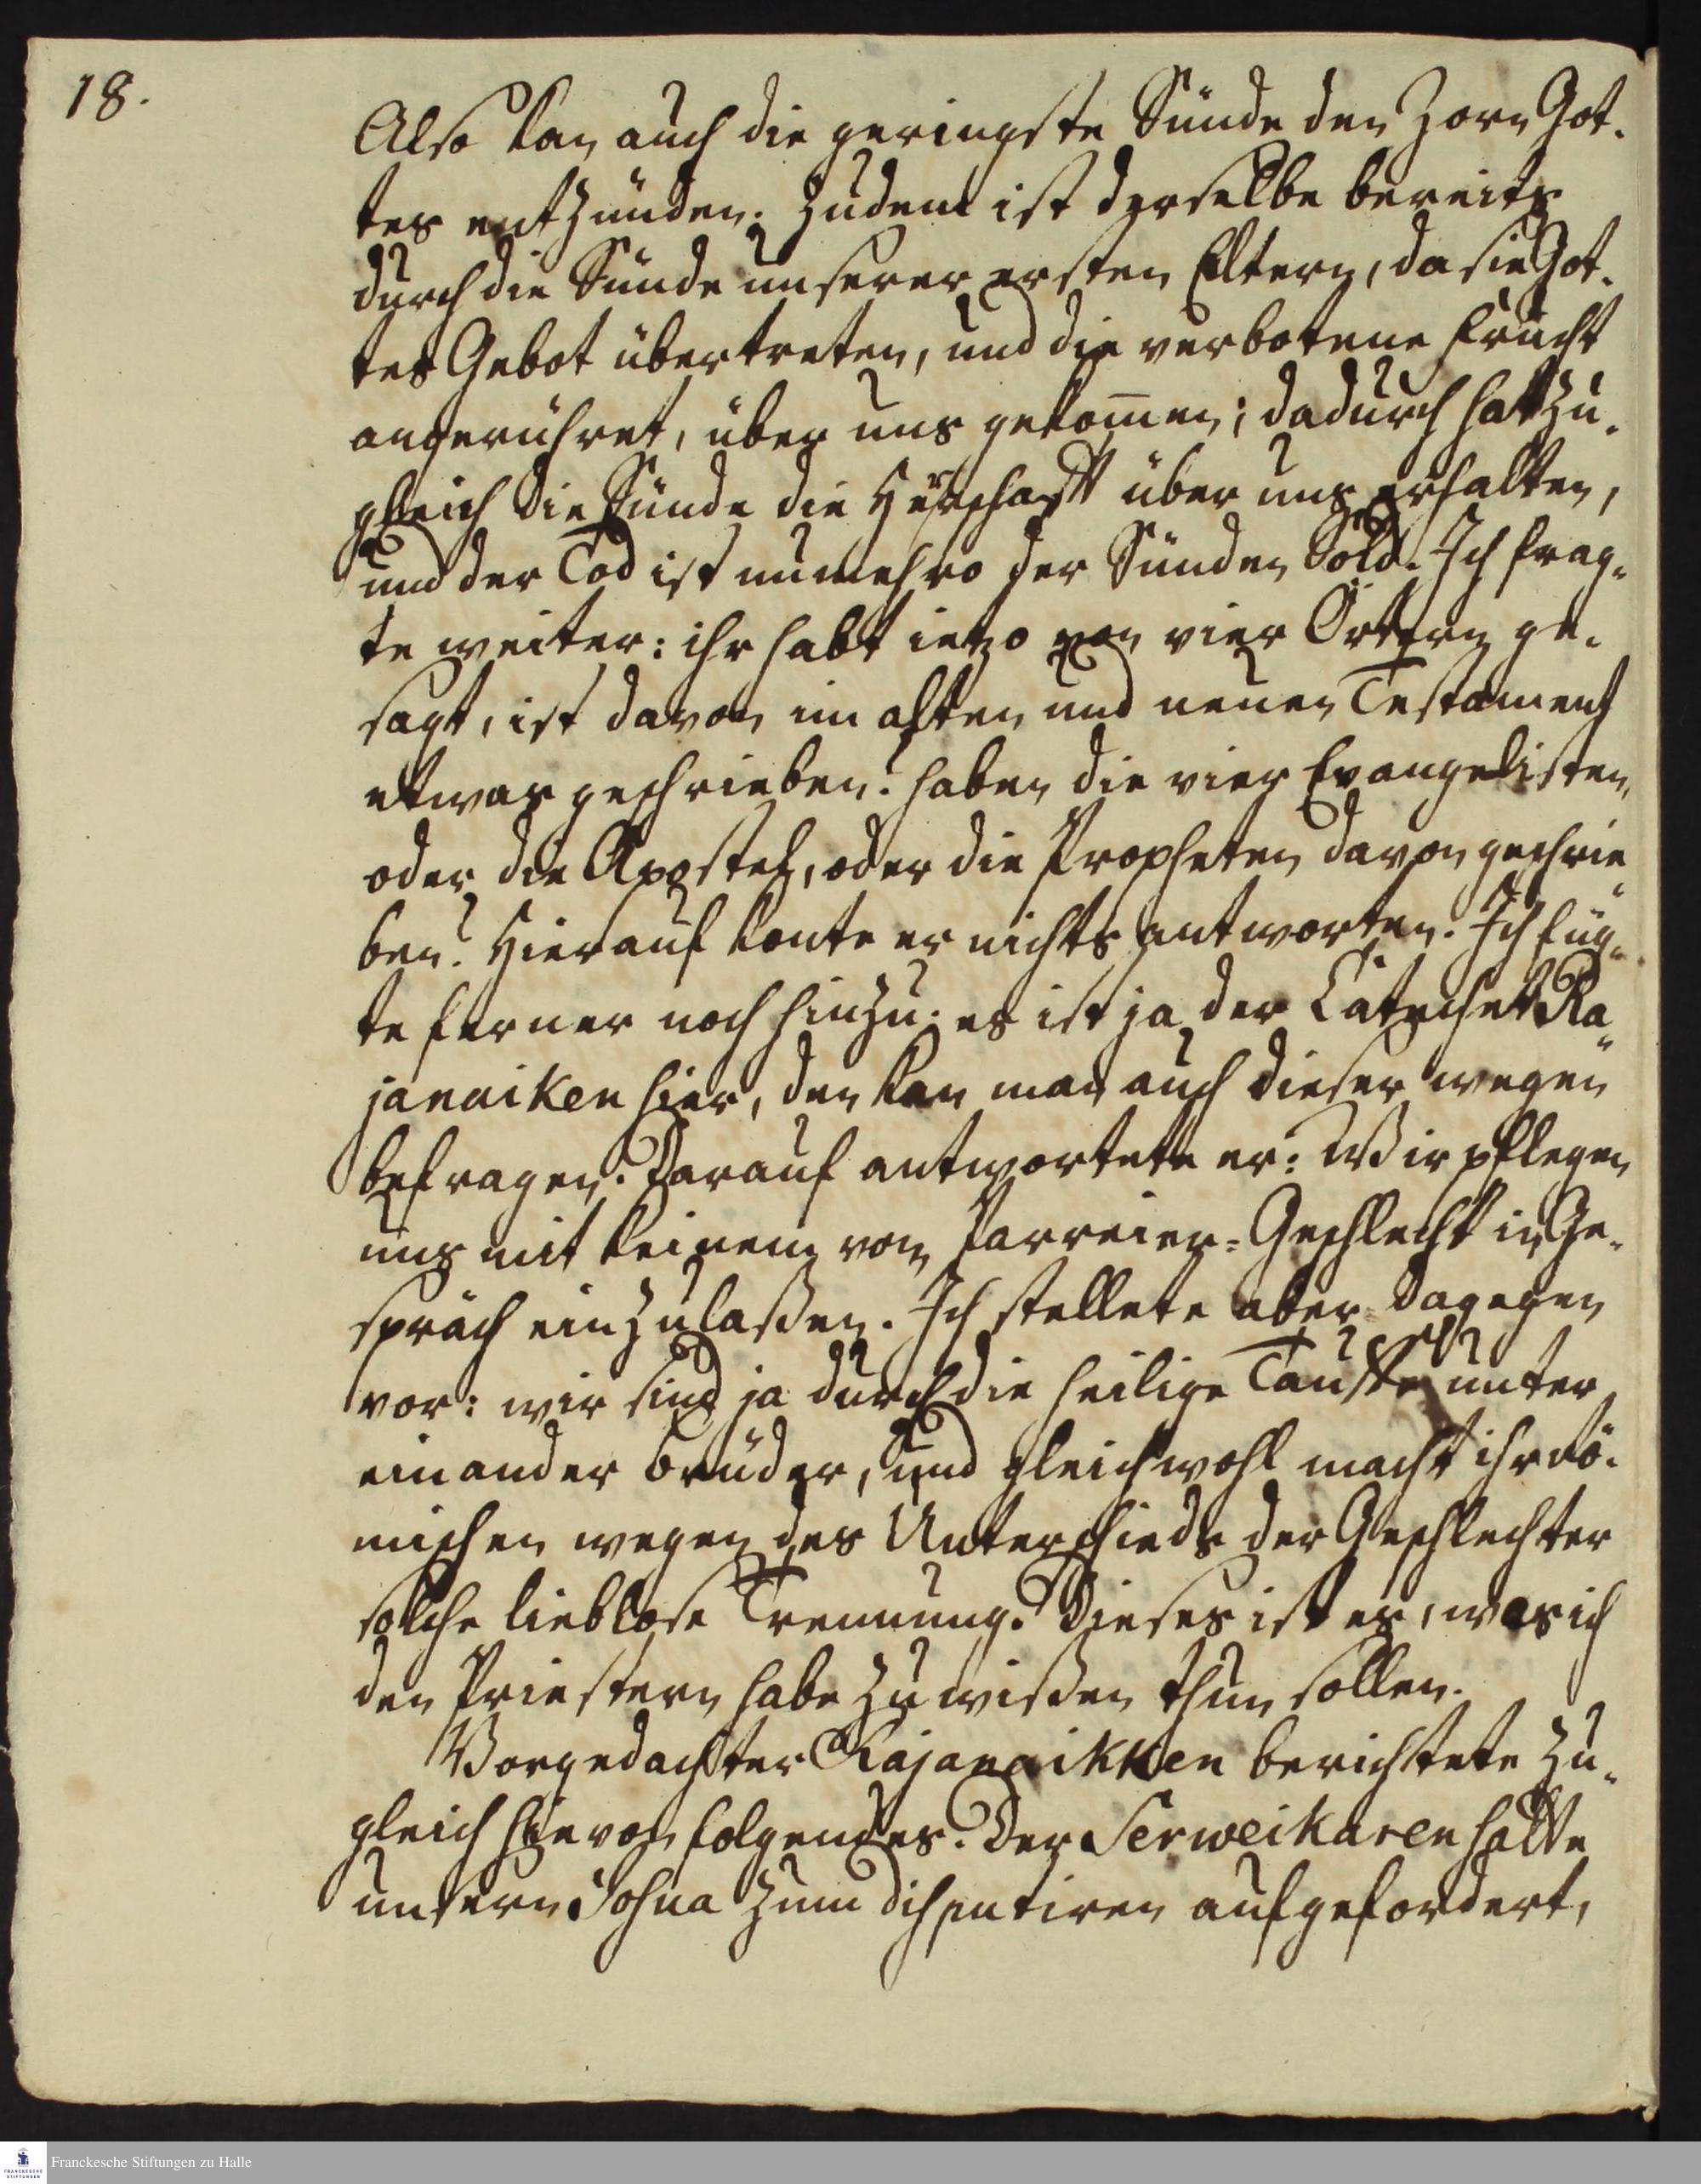 18.
Also kan auch die geringste Sünde den Zorn Got-
tes entzünden. Zudem ist derselbe bereits
durch die Sünde unserer ersten Eltern, da sie Got-
tes Gebot übertreten, und die verbotene Frucht
angerühret, über uns gekom̄en; dadurch hat zu-
gleich die Sünde die Herrschafft über uns erhalten,
und der Tod ist numehro der Sünden Sold. Ich frag-
te weiter: ihr habt ietzo von vier Örtern ge-
sagt, ist davon im alten und neuen Testament
etwas geschrieben? haben die vier Evangelisten,
oder die Apostel, oder die Propheten davon geschrie-
ben? Hierauf konte er nichts antworten. Ich füg-
te ferner noch hinzu: es ist ja der Catechet Ra-
janaiken hier, den kan man auch dieser wegen
befragen. Darauf antwortete er: Wir pflegen
uns mit keinem von Parreier-Geschlecht in Ge-
spräch einzulaßen. Ich stellete aber dagegen
vor: wir sind ja durch die heilige Tauffe unter
einander Brüder, und gleichwohl macht ihr Rö-
mischen wegen des Unterschieds der Geschlechter
solche lieblose Trennung. Dieses ist es, was ich
den Priestern habe zu wißen thun sollen.
Vorgedachter Rajanaikken berichtete zu-
gleich hievon folgendes. Der Serweikaren hatte
unsern Josua zum disputiren aufgefordert,
Franckesche Stiftungen zu Halle